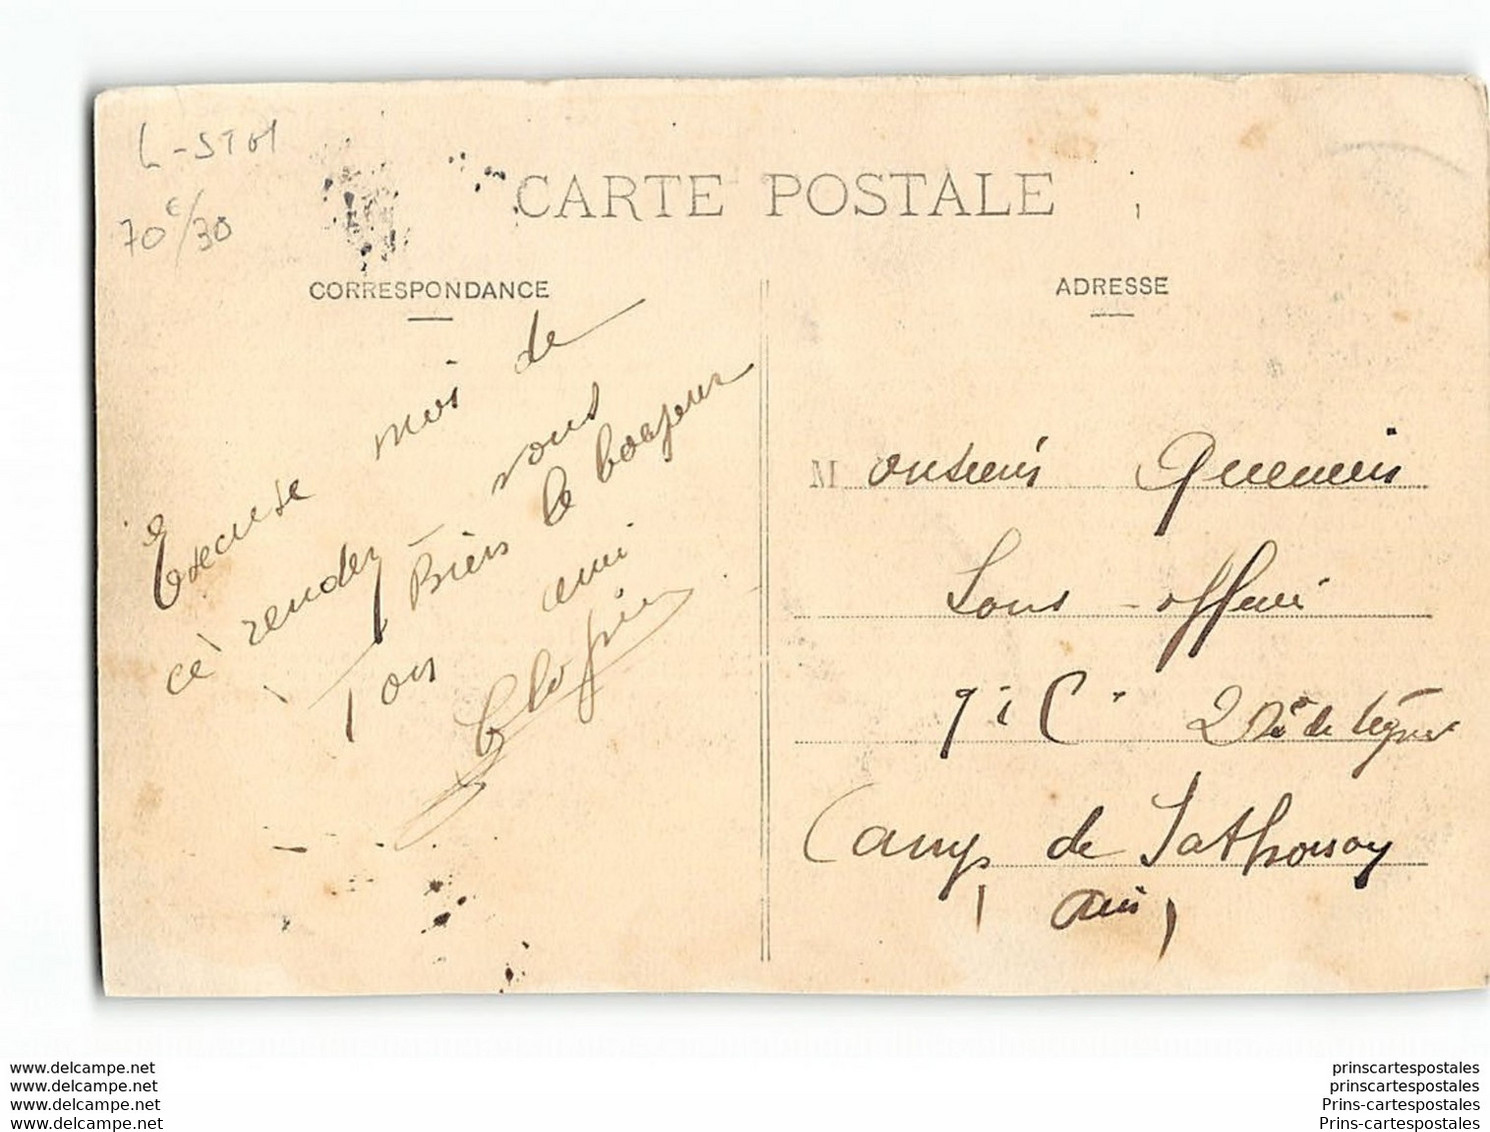 L-ST01
70€/30
CARTE POSTALE
CORRESPONDANCE
Excuse moi de
ce rendez vous
Biens le bonjour
Ton ami
ADRESSE
Monsieur
Sous-officier
9e Cie 2 de ligne
Camp de Sathonay
(Ain)
www.delcampe.net
www.delcampe.net
www.delcampe.net
www.delcampe.net
prinscartespostales
prinscartespostales
Prins-cartespostales
Prins-cartespostales